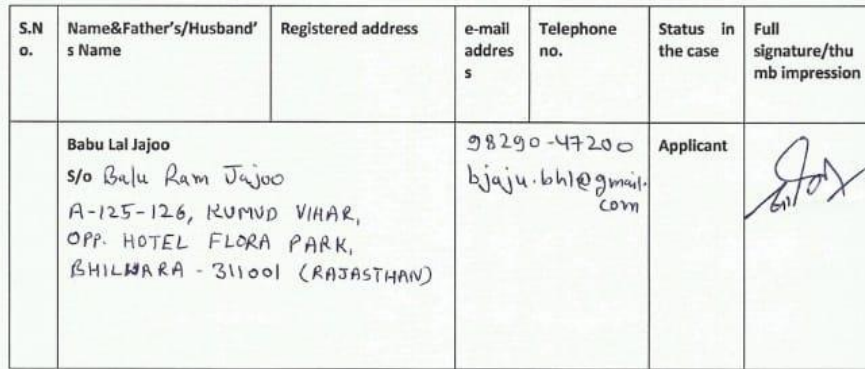 S.N
o.
Name&Father's/Husband'
s Name
Registered address
e-mail
addres
s
Telephone
no.
Status in
the case
Full
signature/thu
mb impression
Babu Lal Jajoo
S/o Balu Ram Jajoo
A-125-126, KUMUD VIHAR,
OPP. HOTEL FLORA PARK,
BHILWARA - 311001 (RAJASTHAN)
98290-47200
bjaju.bhl@gmail.
com
Applicant